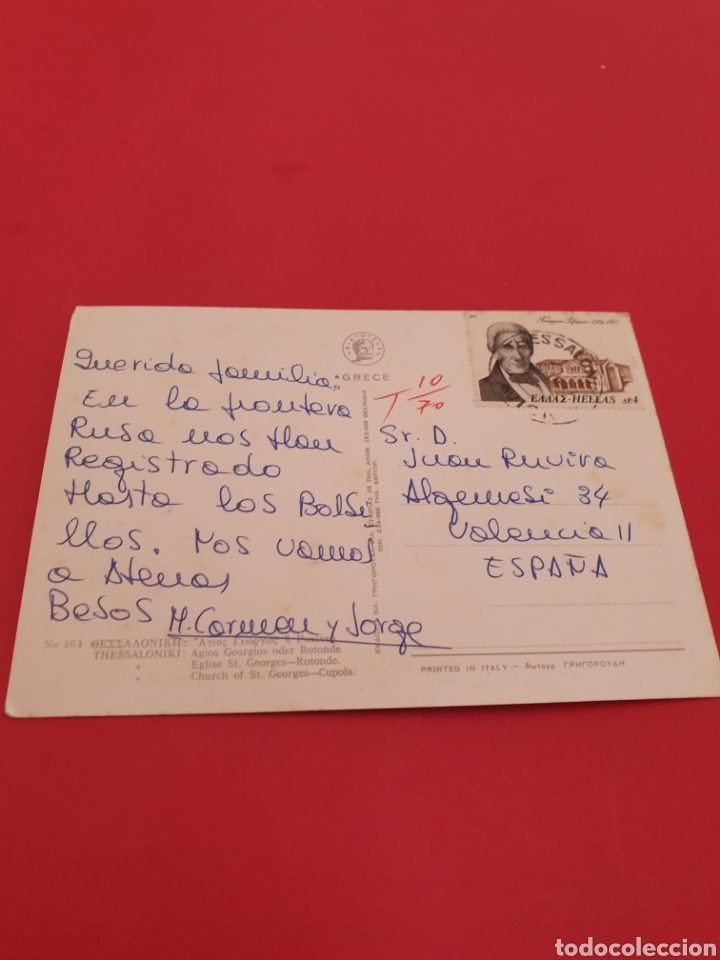 Querida familia:
En la frontera
Rusa nos Han
Registrado
Hasta los Bolsi
llos. Nos vamos
a Atenas
Besos M. Carmen y Jorge
GRECE
T 10/70
ΕΛΛΑΣ-HELLAS ΔΡ4
Sr. D.
Juan Ruvira
Algemesi 34
Valencia 11
ESPAÑA
No 103 ΘΕΣΣΑΛΟΝΙΚΗ: Ἅγιος Γεώργιος ἢ
THESSALONIKI: Agios Georgius oder Rotonde
" Eglise St. Georges—Rotonde.
" Church of St. Georges—Cupola.
PRINTED IN ITALY - Φωτογρ. ΓΡΗΓΟΡΟΥΔΗ
todocoleccion